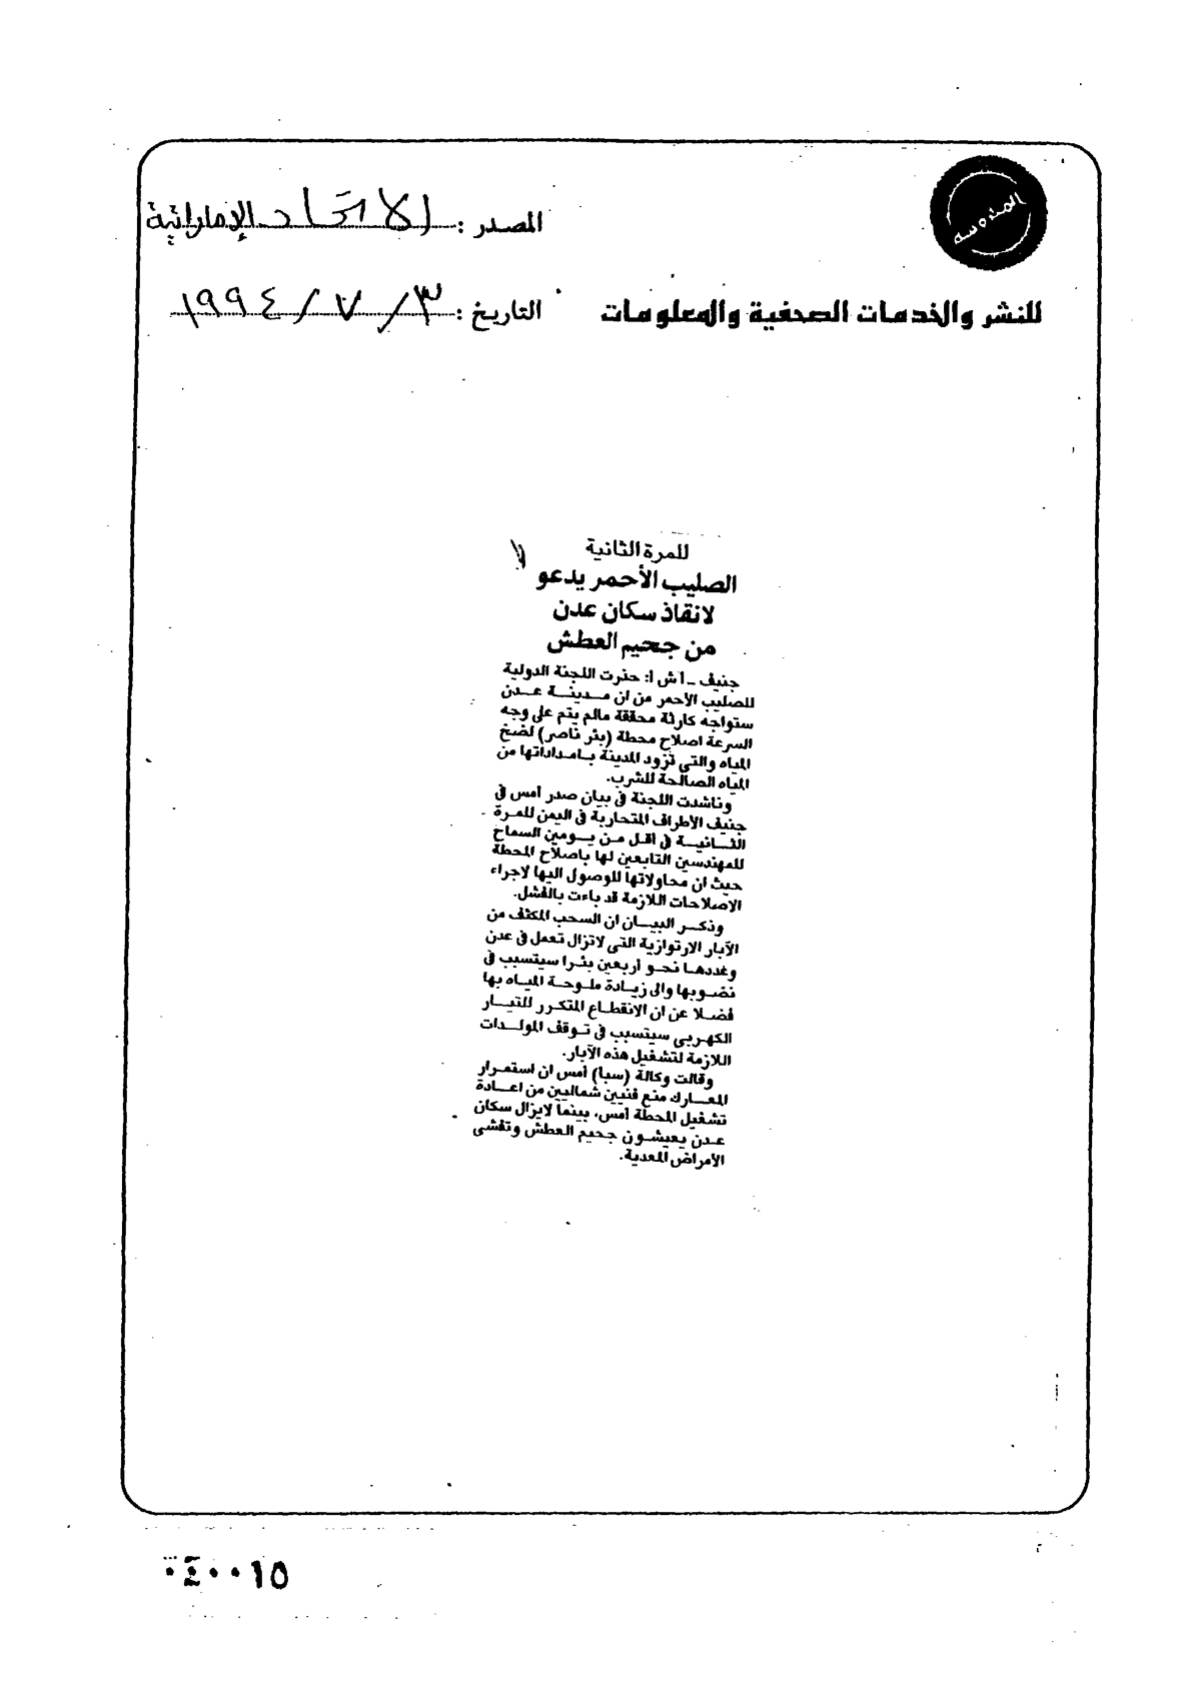 المصدر : الاتحاد الإماراتية
للنشر والخدمات الصحفية والمعلومات
التاريخ : ٣ / ٧ / ١٩٩٤
للمرة الثانية
الصليب الأحمر يدعو
لانقاذ سكان عدن
من جحيم العطش
جنيف ـ أ ش أ: حذرت اللجنة الدولية
للصليب الأحمر من ان مدينة عدن
ستواجه كارثة محققة مالم يتم على وجه
السرعة اصلاح محطة (بئر ناصر) لضخ
المياه والتى تزود المدينة بامداداتها من
المياه الصالحة للشرب.
وناشدت اللجنة فى بيان صدر أمس فى
جنيف الأطراف المتحاربة فى اليمن للمرة
الثانية فى أقل من يومين السماح
للمهندسين التابعين لها باصلاح المحطة
حيث ان محاولاتها للوصول اليها لاجراء
الاصلاحات اللازمة قد باءت بالفشل.
وذكر البيان ان السحب المكثف من
الآبار الارتوازية التى لاتزال تعمل فى عدن
وعددها نحو أربعين بئرا سيتسبب فى
نضوبها والى زيادة ملوحة المياه بها
فضلا عن ان الانقطاع المتكرر للتيار
الكهربى سيتسبب فى توقف المولدات
اللازمة لتشغيل هذه الآبار.
وقالت وكالة (سبا) أمس ان استمرار
المعارك منع فنيين شماليين من اعادة
تشغيل المحطة أمس، بينما لايزال سكان
عدن يعيشون جحيم العطش وتفشى
الأمراض المعدية.
٠٤٠٠١٥